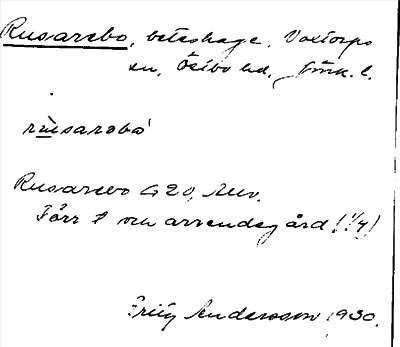 Rusarebo, beteshage, Voxtorps
sn, Östbo hd, Jönk. l.
rùsarebo
Rusarebo G 20, AUv.
Förr t och arrendegård! 1/4)
Fritz Andersson 1930.